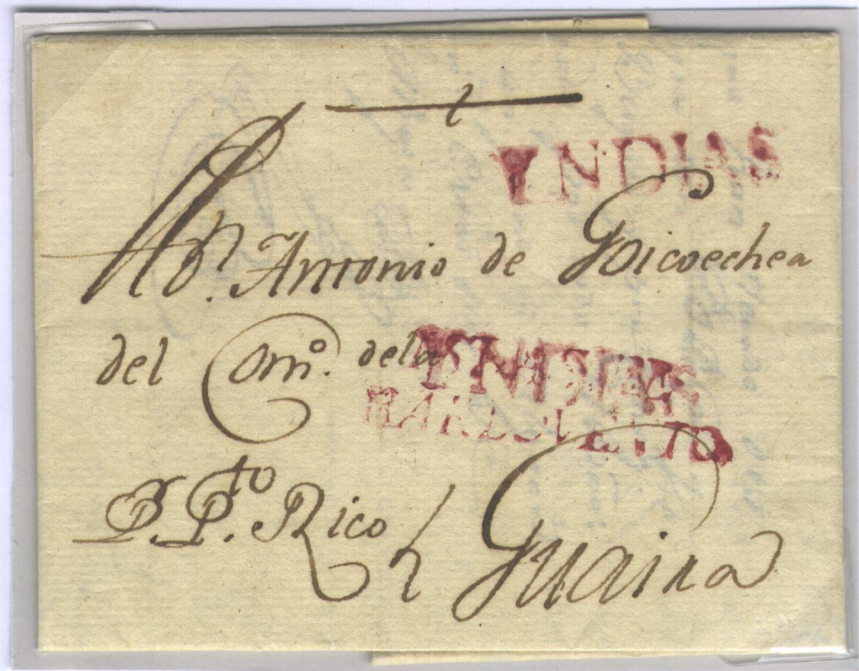 YNDIAS
A Dn. Antonio de Goicoechea
del Como. dela
YNDIAS
P. Pto. Rico Guaira